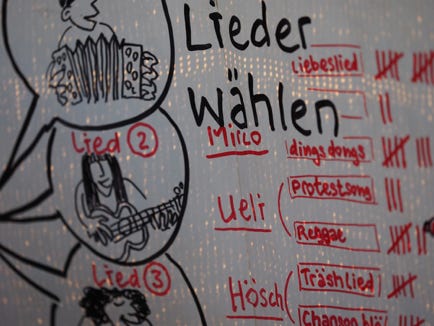 Lieder
Liebeslied
Wählen
Lied 2
Mirco
dingsdongs
Protestsong
Ueli
Reggae
Lied 3
Träshlied
Hösch
Chanson